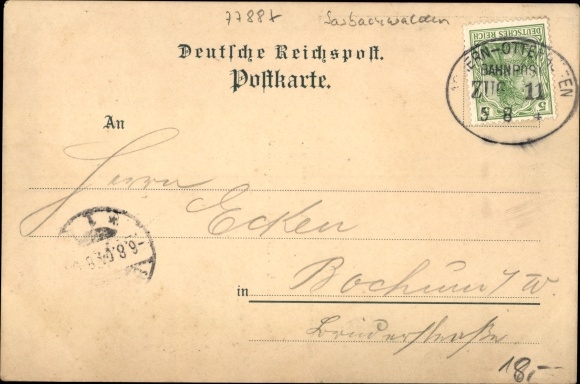 77887 Sasbachwalden
Deutsche Reichspost.
Postkarte.
DEUTSCHES REICH
5
ACHERN-OTTENHÖFEN
BAHNPOST
ZUG 11
5 8 4
An
Herrn
Ecken
in Bochum i/W.
Brüderstraße
1 *
6.8.04.8-9
18,-